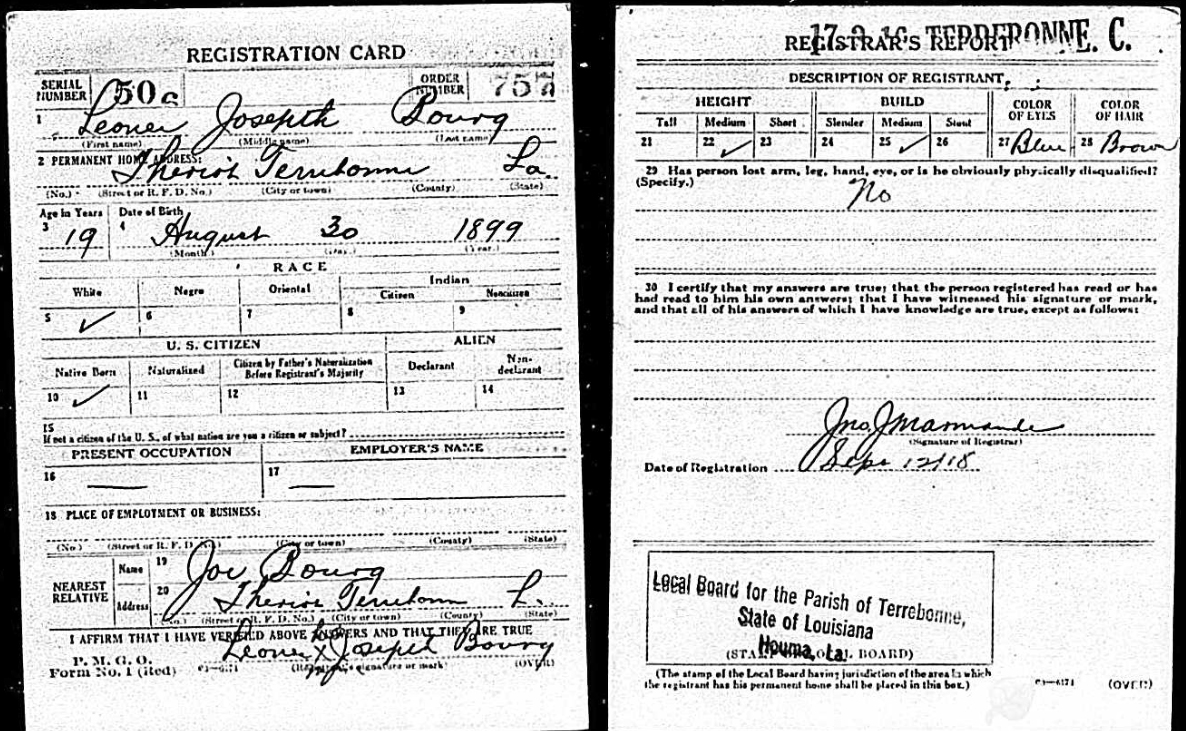 REGISTRATION CARD
SERIAL NUMBER 506 ORDER NUMBER 757
1 Leoner Joseph Bourg
(First name) (Middle name) (Last name)
2 PERMANENT HOME ADDRESS:
Theriot Terrebonne La.
(No.) (Street or R. F. D. No.) (City or town) (County) (State)
Age in Years Date of Birth
3 19 4 August 30 1899
(Month) (Day.) (Year.)
RACE
White Negro Oriental Indian
Citizen Noncitizen
5 ✓ 6 7 8 9
U. S. CITIZEN ALIEN
Native Born Naturalized Citizen by Father's Naturalization Before Registrant's Majority Declarant Non-declarant
10 ✓ 11 12 13 14
15
If not a citizen of the U. S., of what nation are you a citizen or subject?
PRESENT OCCUPATION EMPLOYER'S NAME
16 — 17 —
18 PLACE OF EMPLOYMENT OR BUSINESS:
(No.) (Street or R. F. D. No.) (City or town) (County) (State)
NEAREST RELATIVE
Name 19 Joe Bourg
Address 20 Theriot Terrebonne L.
(No.) (Street or R. F. D. No.) (City or town) (County) (State)
I AFFIRM THAT I HAVE VERIFIED ABOVE ANSWERS AND THAT THEY ARE TRUE
Leoner X Joseph Bourg
P. M. G. O.
Form No. 1 (Red) (Registrant's signature or mark) (OVER)
17-3-16 TERREBONNE. C.
REGISTRAR'S REPORT
DESCRIPTION OF REGISTRANT
HEIGHT BUILD COLOR OF EYES COLOR OF HAIR
Tall Medium Short Slender Medium Stout
21 22 ✓ 23 24 25 ✓ 26 27 Blue 28 Brown
29 Has person lost arm, leg, hand, eye, or is he obviously physically disqualified?
(Specify.) No
30 I certify that my answers are true; that the person registered has read or has
had read to him his own answers; that I have witnessed his signature or mark,
and that all of his answers of which I have knowledge are true, except as follows:
Jno. J Marmande
(Signature of Registrar)
Date of Registration Sept 12/18
Local Board for the Parish of Terrebonne,
State of Louisiana
Houma, La.
(STAMP OF LOCAL BOARD)
(The stamp of the Local Board having jurisdiction of the area in which
the registrant has his permanent home shall be placed in this box.)
03—6171 (OVER)